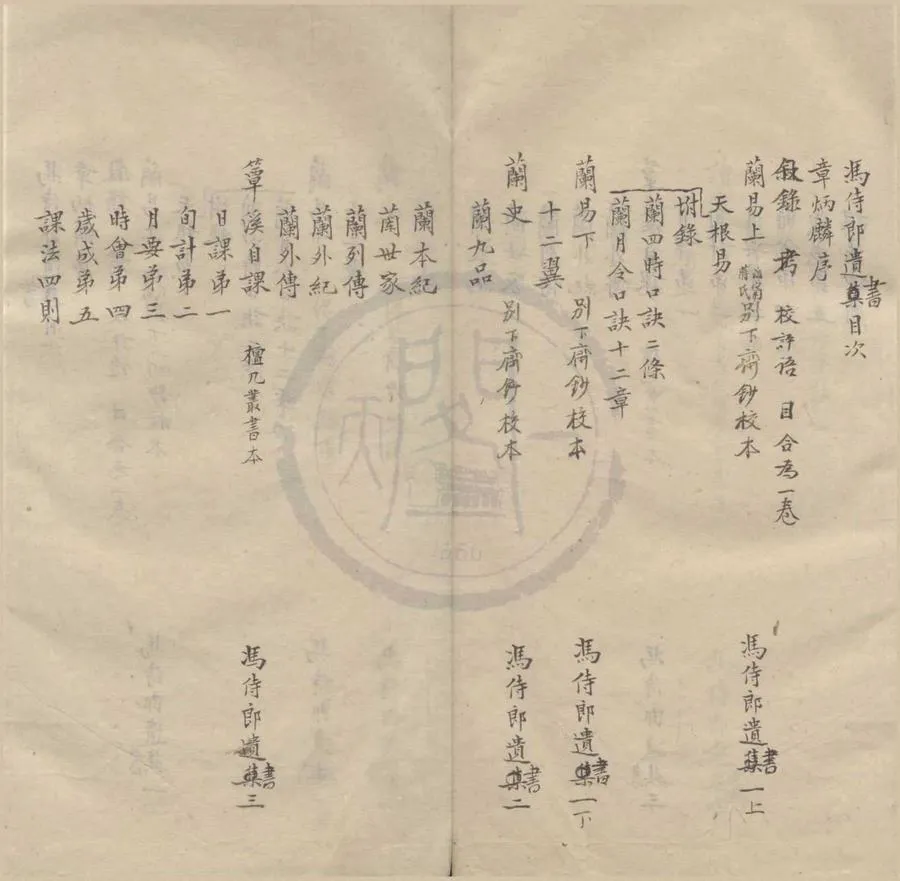 馮侍郎遺書目次
章炳麟序
敍錄 校評語 目合為一卷
蘭易上 蔣氏別下齋鈔校本 馮侍郎遺書一上
天根易
坿錄
蘭四時口訣二條
蘭月令口訣十二章
蘭易下 別下齋鈔校本 馮侍郎遺書一下
十二翼
蘭史 別下齋鈔校本 馮侍郎遺書二
蘭九品
蘭本紀
蘭世家
蘭列傳
蘭外紀
蘭外傳
簟溪自課 檀几叢書本 馮侍郎遺書三
日課弟一
旬計弟二
月要弟三
時會弟四
歲成弟五
課法四則